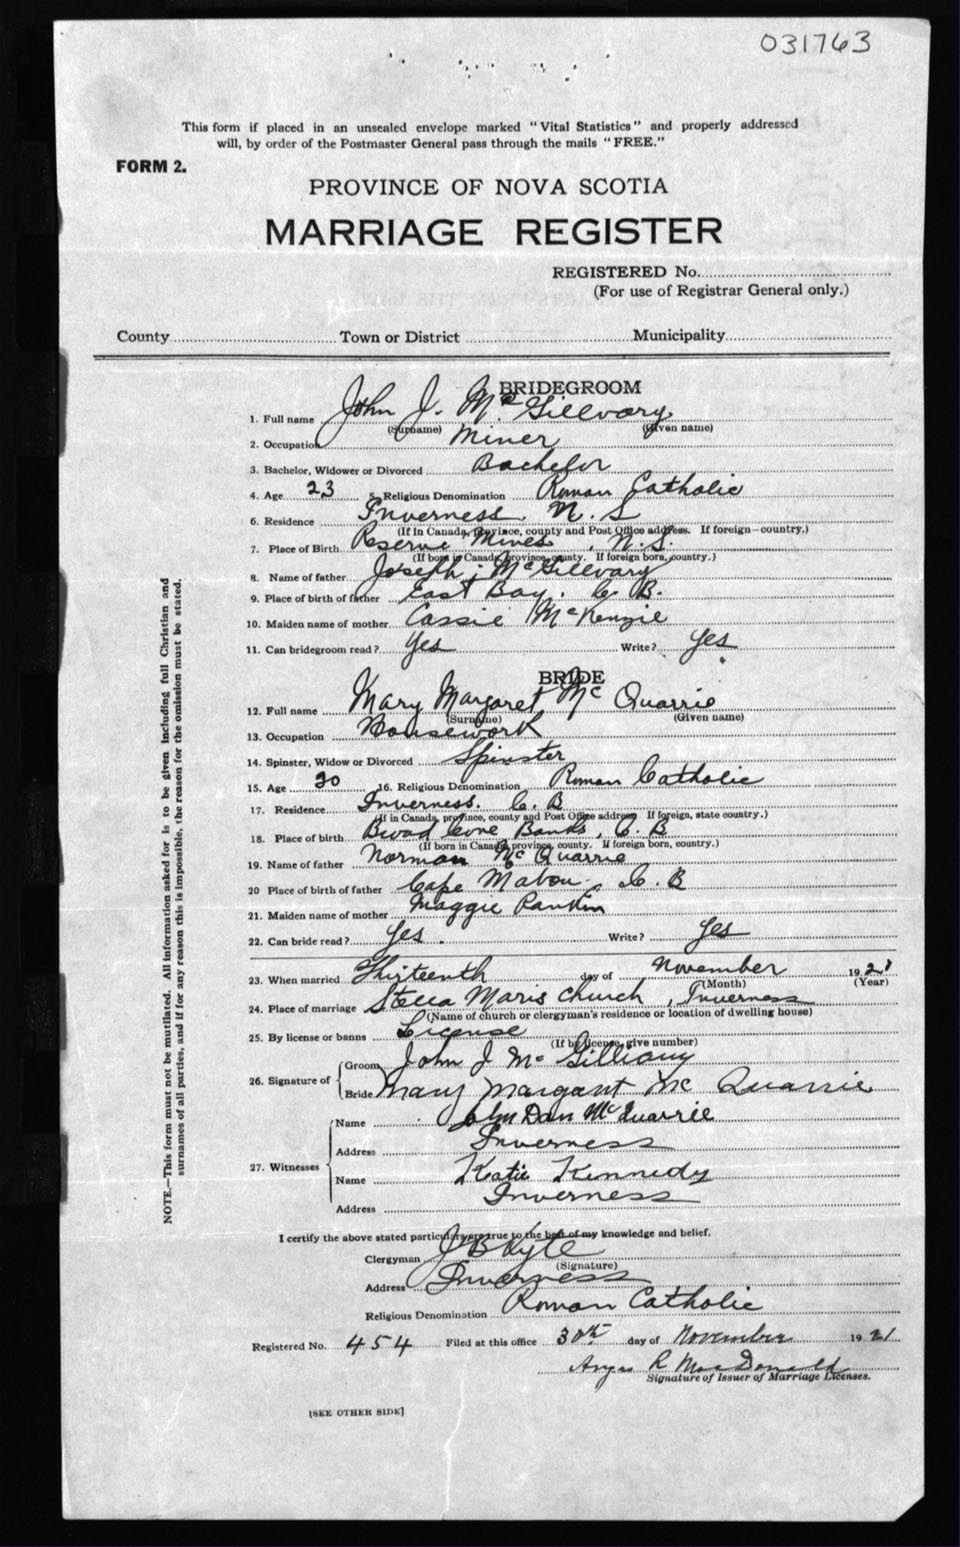 031763
This form if placed in an unsealed envelope marked "Vital Statistics" and properly addressed
will, by order of the Postmaster General pass through the mails "FREE."
FORM 2.
PROVINCE OF NOVA SCOTIA
MARRIAGE REGISTER
REGISTERED No.
(For use of Registrar General only.)
County Town or District Municipality
BRIDEGROOM
1. Full name John J. McGillvary
(Surname) (Given name)
2. Occupation Miner
3. Bachelor, Widower or Divorced Bachelor
4. Age 23 5. Religious Denomination Roman Catholic
6. Residence Inverness, N. S
(If In Canada, province, county and Post Office address. If foreign—country.)
7. Place of Birth Reserve Mines, N. S.
(If born in Canada, province, county. If foreign born, country.)
8. Name of father Joseph McGillvary
9. Place of birth of father East Bay. C. B.
10. Maiden name of mother Cassie McKenzie
11. Can bridegroom read? Yes Write? Yes
BRIDE
12. Full name Mary Margaret Mc Quarrie
(Surname) (Given name)
13. Occupation Housework
14. Spinster, Widow or Divorced Spinster
15. Age 20 16. Religious Denomination Roman Catholic
17. Residence Inverness. C. B
(If in Canada, province, county and Post Office address If foreign, state country.)
18. Place of birth Broad Cove Banks, C. B
(If born in Canada, province, county. If foreign born, country.)
19. Name of father Norman Mc Quarrie
20 Place of birth of father Cape Mabou, C. B
21. Maiden name of mother Maggie Rankin
22. Can bride read? Yes. Write? Yes
23. When married Thirteenth day of November 1921
(Month) (Year)
24. Place of marriage Stella Maris Church, Inverness
(Name of church or clergyman's residence or location of dwelling house)
25. By license or banns License
(If by license, give number)
26. Signature of Groom John J Mc Gilliany
Bride Mary Margant Mc Quarrie
27. Witnesses Name John Dan McQuarrie
Address Inverness
Name Katie Kennedy
Address Inverness
I certify the above stated particulars are true to the best of my knowledge and belief.
Clergyman J B Kyte
(Signature)
Address Inverness
Religious Denomination Roman Catholic
Registered No. 454 Filed at this office 30th day of November 1921
Angus R MacDonald
Signature of Issuer of Marriage Licenses.
[SEE OTHER SIDE]
NOTE.—This form must not be mutilated. All information asked for is to be given including full Christian and
surnames of all parties, and if for any reason this is impossible, the reason for the omission must be stated.